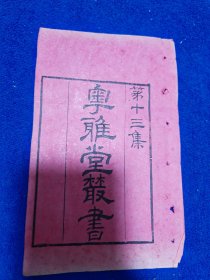 第十三集
粵雅堂叢書